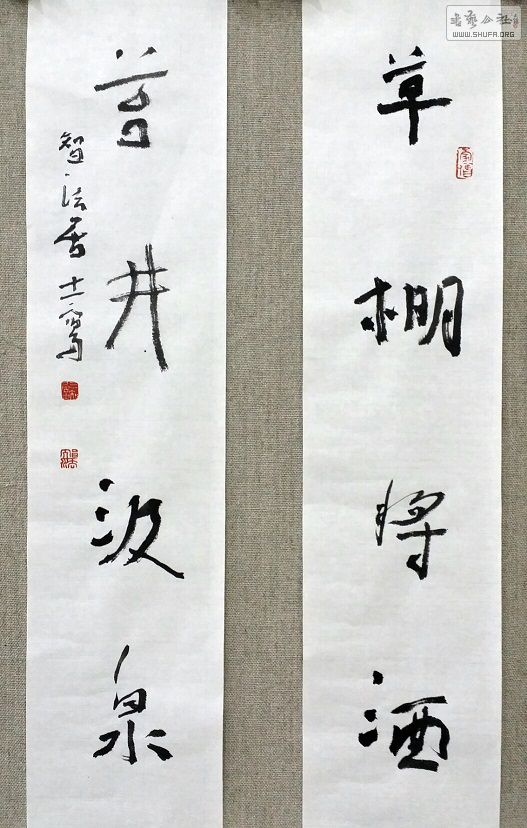 草棚将酒
苦井汲泉
智法居士寫
書藝公社
WWW.SHUFA.ORG